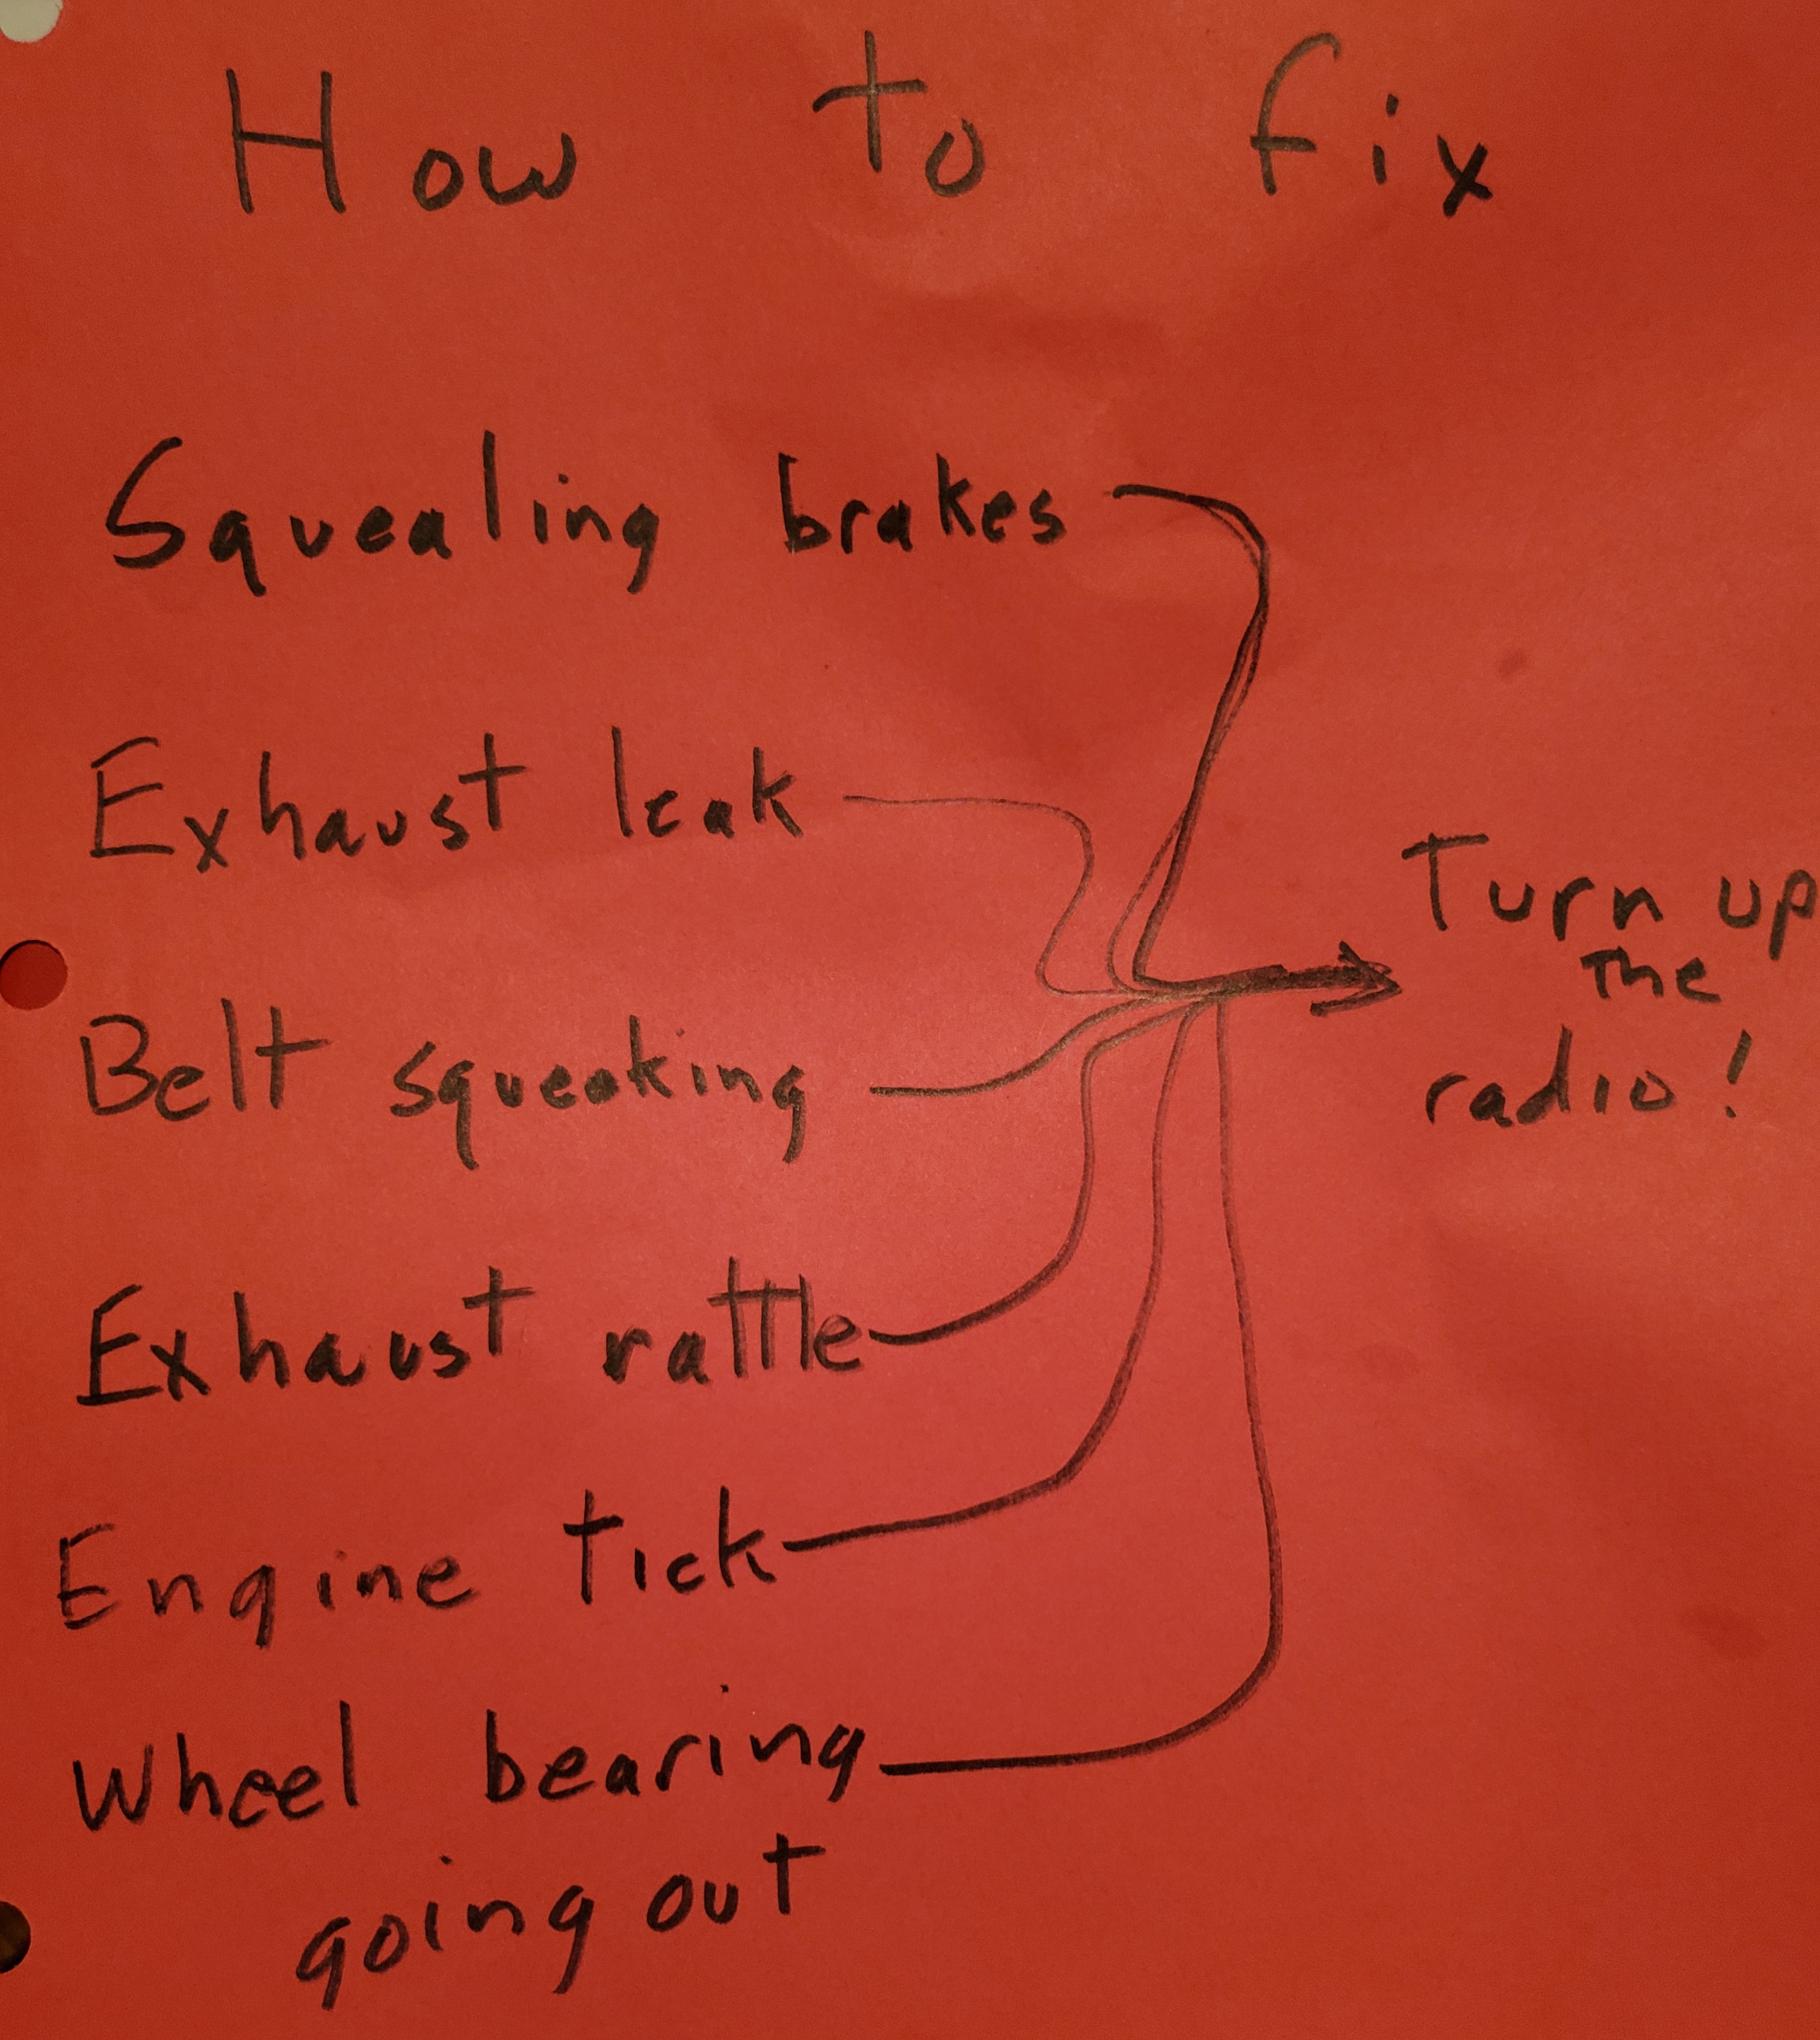 How to fix
Squealing brakes
Exhaust leak
Belt squeaking
Exhaust rattle
Engine tick
Wheel bearing
going out
Turn up
the
radio!